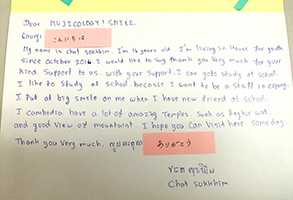 Dear MUJICOLOGY! SMILE.
こんにちは
My name is chat sokkhim. I'm 16 years old. I'm living in House for youth
since October 2016. I would like to say thank you very much for your
kind support to us. with your support. I can go to study at school.
I like to study at school. because I want to be a staff in company.
I put at big smile on me when I have new friend at school.
I cambodia have a lot of amazing Temples. Such as Angkor wat.
and good view of mountaint I hope you can visit here someday.
Thank you very much. ありがとう
Chat sokkhim